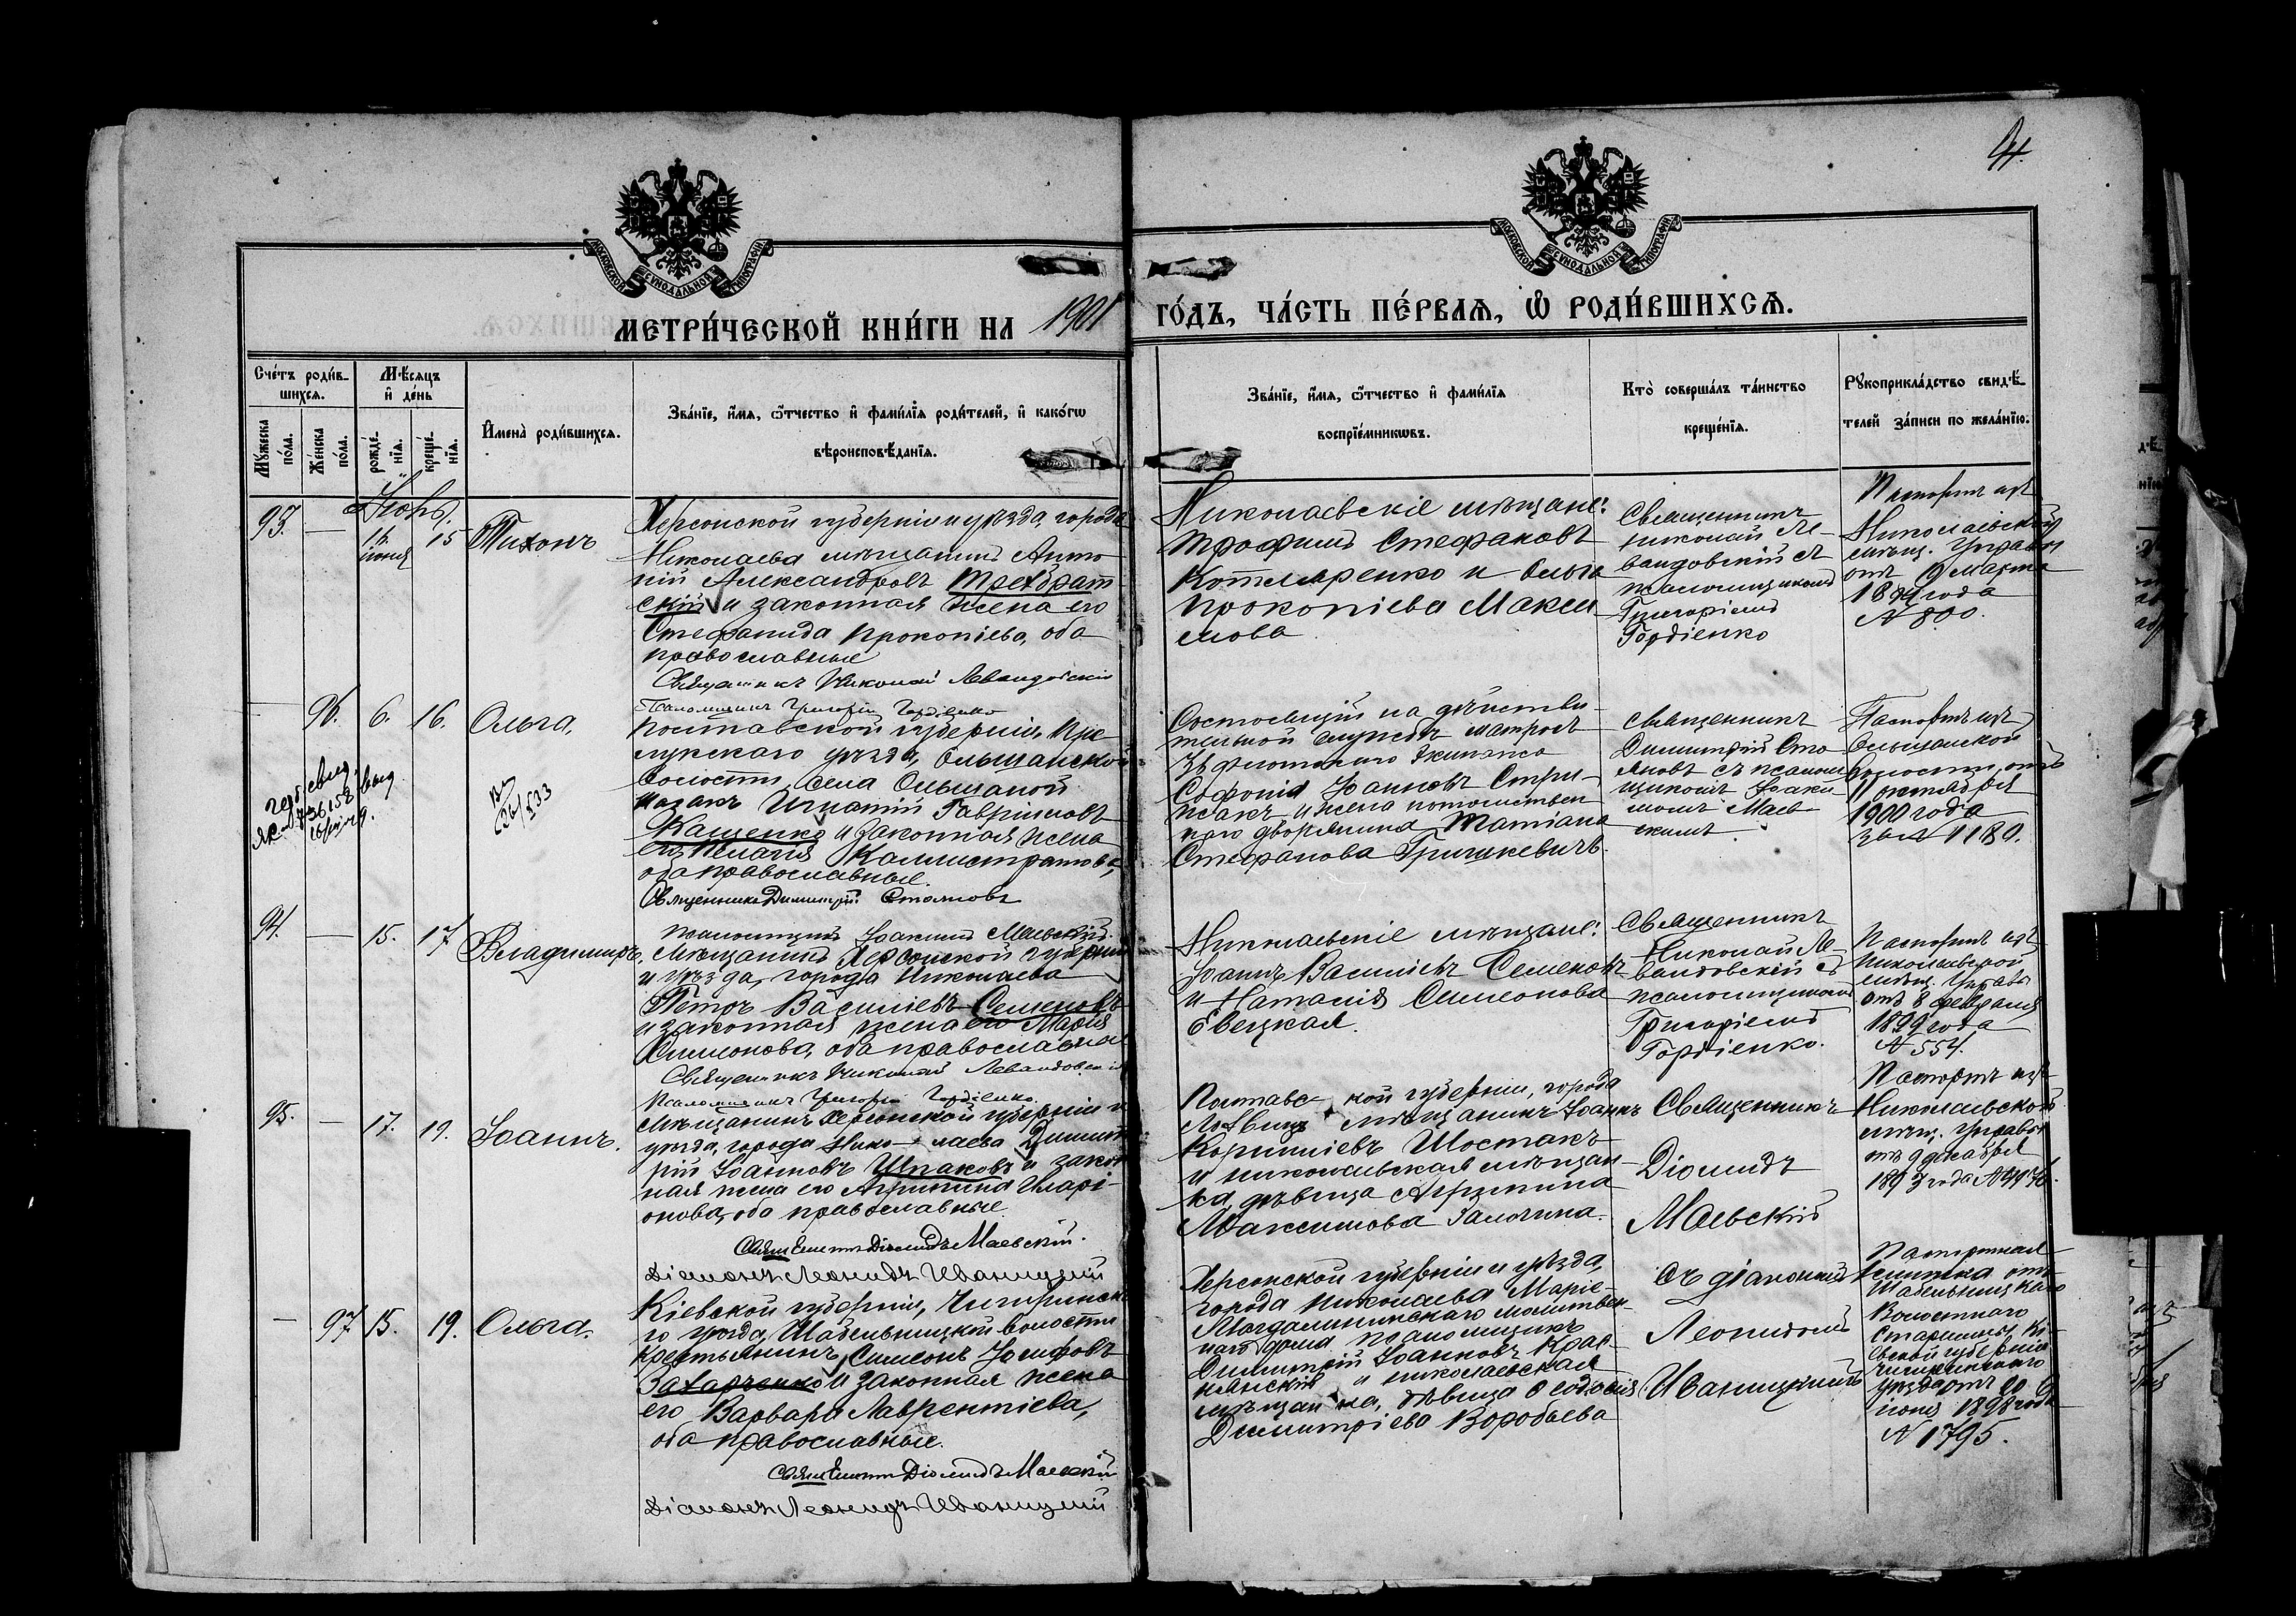 4.
МОСКОВСКОЙ СѴНОДАЛЬНОЙ ТИПОГРАФІИ
МОСКОВСКОЙ СѴНОДАЛЬНОЙ ТИПОГРАФІИ
МЕТРИ́ЧЕСКОЙ КНИ́ГИ НА 1901 ГО́ДЪ, ЧА́СТЬ ПЕ́РВАѦ, Ѽ РОДИ́ВШИХСѦ.
Счéтъ роди́в-
шихсѧ.
Мꙋ́жеска
пóла.
Жéнска
пóла.
Мѣ́сѧцъ
и҆ де́нь
рождé-
нїѧ.
крещé-
нїѧ.
И҆менà роди́вшихсѧ.
Звáнїе, и҆́мѧ, ѻ҆́тчество и҆ фами́лїѧ роди́телей, и҆ какóгѡ
вѣроисповѣ́данїѧ.
Звáнїе, и҆́мѧ, ѻ҆́тчество и҆ фами́лїѧ
воспрїе́мникѡвъ.
Ктò совершáлъ тáинство
крещéнїѧ.
Рꙋкоприклáдство свидѣ́-
телей зáписи по желáнїю.
Іюнь.
93. — 15 Тихонъ
іюня
Херсонской губерніи и уѣзда, города
Николаева мѣщанинъ Анто
ній Александровъ Трехбрат
скій и законная жена его
Стефанида Прокопіева, оба
православные
Священникъ Николай Левандовскій
Псаломщикъ Григорій Гордіенко
Николаевскіе мѣщане:
Трофимъ Стефановъ
Котляренко и Ольга
Прокопіева Макси
мова
Священникъ
Николай Ле-
вандовскій съ
псаломщикомъ
Григоріемъ
Гордіенко
Паспортъ изъ
Николаевской
мѣщ. Управы
отъ 9 марта
года
№ 800.
— 96. 6. 16. Ольга.
Полтавской губерніи, При
лукскаго уѣзда, Ольшанской
волости, села Ольшаной
казакъ Игнатій Гавріиловъ
Кащенко и законная жена
его Пелагія Каллистратова,
оба православные.
Священникъ Димитрій Стояновъ
Псаломщикъ Іоакимъ Маевскій.
Состоящій на дѣйстви-
тельной службѣ матросъ
флотскаго Экипажа
Софоній Іоанновъ Стри-
жакъ и жена потомствен
наго дворянина Татіана
Стефанова Гришкевичъ.
Священникъ
Димитрій Сто
яновъ съ псалом
щикомъ Іоаки
момъ Маев
скимъ
Паспортъ изъ
Ольшанской
волости отъ
11 октября
1900 года
за № 1180.
94. — 15. 17 Владимиръ,
Мѣщанинъ Херсонской губерніи
и уѣзда, города Николаева
Петръ Василіевъ Семеновъ
и законная жена его Марія
Симеонова, оба православные
Священникъ Николай Левандовскій
Псаломщикъ Григорій Гордіенко.
Николаевскіе мѣщане:
Іоаннъ Василіевъ Семеновъ
и Наталія Симеонова
Евецкая.
Священникъ
Николай Ле-
вандовскій съ
псаломщикомъ
Григоріемъ
Гордіенко.
Паспортъ изъ
Николаевской
мѣщ. Управы
отъ 8 февраля
1899 года
№ 554.
95. — 17. 19. Іоаннъ.
Мѣщанинъ Херсонской губерніи и
уѣзда, города Нико-лаева Димит
рій Іоанновъ Шпаковъ и закон
ная жена его Агрипина Иларі-
онова, оба православные.
Священникъ Діомидъ Маевскій.
Діаконъ Леонидъ Иваницкій
Полтавс-кой губерніи, города
мѣщанинъ Іоаннъ
Корниліевъ Шостакъ
и николаевская мѣщан
ка, дѣвица Агрипина
Максимова Галочина.
Священникъ
Діомидъ
Маевскій
Паспортъ изъ
Николаевской
мѣщ. Управы
отъ 9 декабря
— 97 15. 19. Ольга.
Кіевской губерніи, Чигиринска
го уѣзда, Шабельницкой волости
крестьянинъ Симеонъ Іосифовъ
Захарченко и законная жена
его Варвара Лаврентіева,
оба православные.
Священникъ Діомидъ Маевскій
Діаконъ Леонидъ Иваницкій
Херсонской губерніи и уѣзда,
города Николаева Маріе-
Магдалининскаго молитвен-
наго дома псаломщикъ
Димитрій Іоанновъ Крас-
нянскій и николаевская
мѣщанка, дѣвица Феодосія
Димитріева Воробьева
съ діакономъ
Леонидомъ
Иваницкимъ
Паспортная
книжка отъ
Шабельницкаго
Волостнаго
Старшины Кі-
евской губерніи
Чигиринскаго
уѣзда отъ 20
іюня 1898 года
№ 1795.